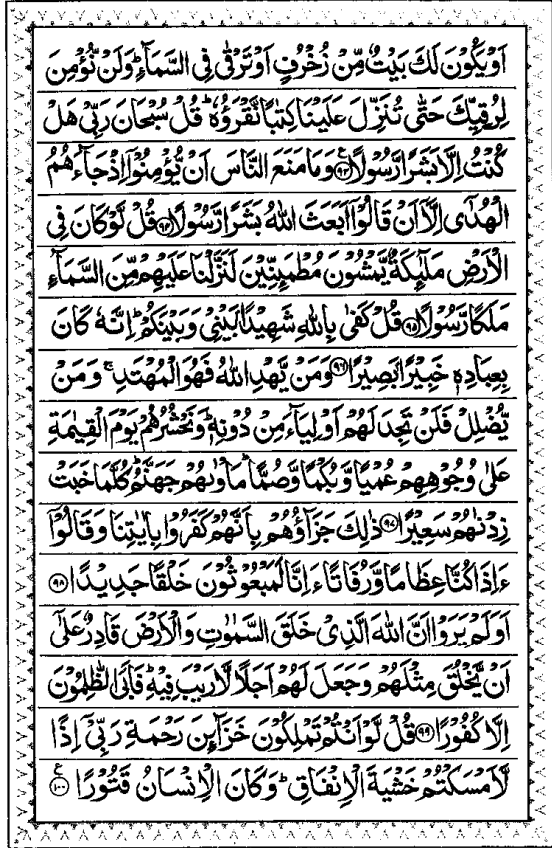 اَوۡ یَکُوۡنَ لَکَ بَیۡتٌ مِّنۡ زُخۡرُفٍ اَوۡ تَرۡقٰی فِی السَّمَآءِ ؕ وَ لَنۡ نُّؤۡمِنَ
لِرُقِیِّکَ حَتّٰی تُنَزِّلَ عَلَیۡنَا کِتٰبًا نَّقۡرَؤُہٗ ؕ قُلۡ سُبۡحَانَ رَبِّیۡ ہَلۡ
کُنۡتُ اِلَّا بَشَرًا رَّسُوۡلًا ﴿۹۳﴾ع وَ مَا مَنَعَ النَّاسَ اَنۡ یُّؤۡمِنُوۡۤا اِذۡ جَآءَہُمُ
الۡہُدٰۤی اِلَّاۤ اَنۡ قَالُوۡۤا اَبَعَثَ اللہُ بَشَرًا رَّسُوۡلًا ﴿۹۴﴾ قُلۡ لَّوۡ کَانَ فِی
الۡاَرۡضِ مَلٰٓئِکَۃٌ یَّمۡشُوۡنَ مُطۡمَئِنِّیۡنَ لَنَزَّلۡنَا عَلَیۡہِمۡ مِّنَ السَّمَآءِ
مَلَکًا رَّسُوۡلًا ﴿۹۵﴾ قُلۡ کَفٰی بِاللہِ شَہِیۡدًۢا بَیۡنِیۡ وَ بَیۡنَکُمۡ ؕ اِنَّہٗ کَانَ
بِعِبَادِہٖ خَبِیۡرًۢا بَصِیۡرًا ﴿۹۶﴾ وَ مَنۡ یَّہۡدِ اللہُ فَہُوَ الۡمُہۡتَدِ ۚ وَ مَنۡ
یُّضۡلِلۡ فَلَنۡ تَجِدَ لَہُمۡ اَوۡلِیَآءَ مِنۡ دُوۡنِہٖ ؕ وَ نَحۡشُرُہُمۡ یَوۡمَ الۡقِیٰمَۃِ
عَلٰی وُجُوۡہِہِمۡ عُمۡیًا وَّ بُکۡمًا وَّ صُمًّا ؕ مَاۡوٰىہُمۡ جَہَنَّمُ ؕ کُلَّمَا خَبَتۡ
زِدۡنٰہُمۡ سَعِیۡرًا ﴿۹۷﴾ ذٰلِکَ جَزَآؤُہُمۡ بِاَنَّہُمۡ کَفَرُوۡا بِاٰیٰتِنَا وَ قَالُوۡۤا
ءَ اِذَا کُنَّا عِظَامًا وَّ رُفَاتًا ءَ اِنَّا لَمَبۡعُوۡثُوۡنَ خَلۡقًا جَدِیۡدًا ﴿۹۸﴾
اَوَ لَمۡ یَرَوۡا اَنَّ اللہَ الَّذِیۡ خَلَقَ السَّمٰوٰتِ وَ الۡاَرۡضَ قَادِرٌ عَلٰۤی
اَنۡ یَّخۡلُقَ مِثۡلَہُمۡ وَ جَعَلَ لَہُمۡ اَجَلًا لَّا رَیۡبَ فِیۡہِ ؕ فَاَبَی الظّٰلِمُوۡنَ
اِلَّا کُفُوۡرًا ﴿۹۹﴾ قُلۡ لَّوۡ اَنۡتُمۡ تَمۡلِکُوۡنَ خَزَآئِنَ رَحۡمَۃِ رَبِّیۡۤ اِذًا
لَّاَمۡسَکۡتُمۡ خَشۡیَۃَ الۡاِنۡفَاقِ ؕ وَ کَانَ الۡاِنۡسَانُ قَتُوۡرًا ﴿۱۰۰﴾ع